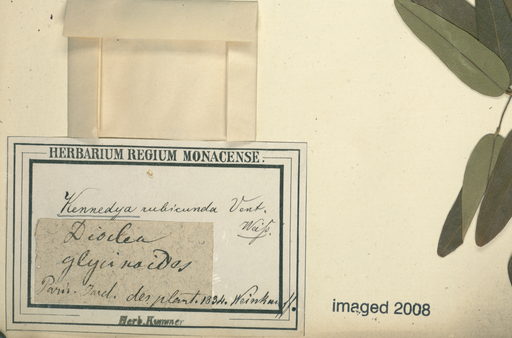 HERBARIUM REGIUM MONACENSE.
Kennedya rubicunda Vent.
Dioclea
glycinoides
Paris. Jard. des plant. 1834. Weinkauff.
Herb. Kummer
imaged 2008